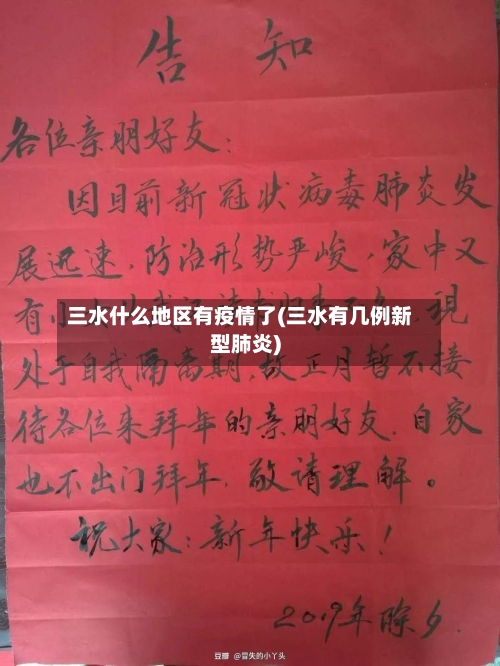 告知
各位亲朋好友:
因目前新冠状病毒肺炎发
展迅速,防治形势严峻,家中又
有
三水什么地区有疫情了(三水有几例新
型肺炎)
现
处于自我隔离期,故正月暂不接
待各位来拜年的亲朋好友.自家
也不出门拜年,敬请理解。
祝大家:新年快乐!
2019年除夕.
豆瓣 @冒失的小丫头